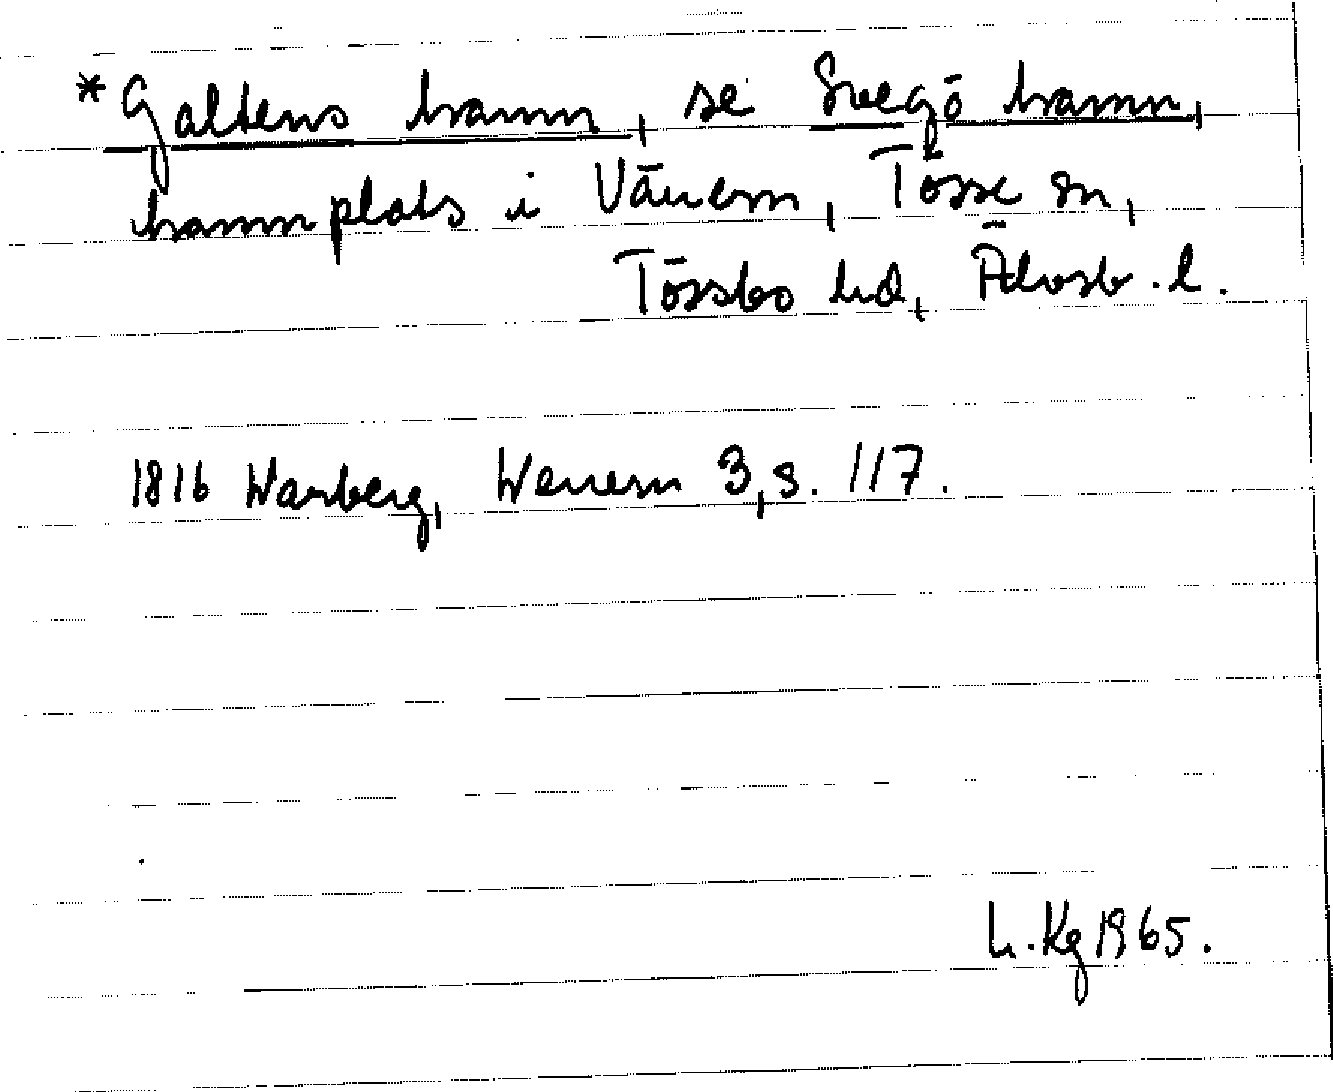 *Galtens hamn, se Svegö hamn,
hamnplats i Vänern, Tösse sn,
Tössbo hd, Älvsb. l.
1816 Warberg, Wenern 3, s. 117.
L. Kg 1965.